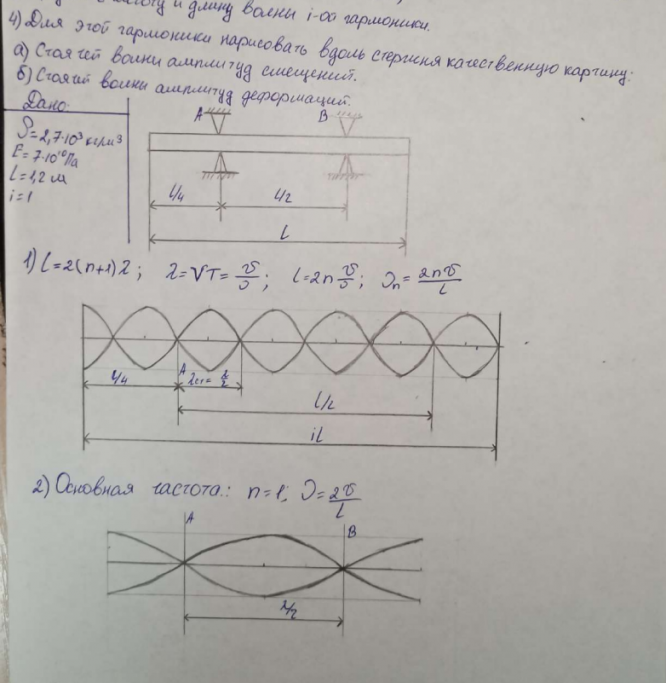 и длину волны i-ой гармоники.
4) Для этой гармоники нарисовать вдоль стержня качественную картину:
а) Стоячей волны амплитуд смещений.
б) Стоячей волны амплитуд деформаций.
Дано:
ρ=2,7·10³ кг/м³
E=7·10¹⁰ Па
l=1,2 м
i=1
A B
l/4 l/2
l
1) l=2(n+1)λ; λ=VT=v/ν; l=2n v/ν; νn=2nv/l
l/4 A λст=λ/2
l/2
il
2) Основная частота: n=1; ν=2v/l
A B
λ/2